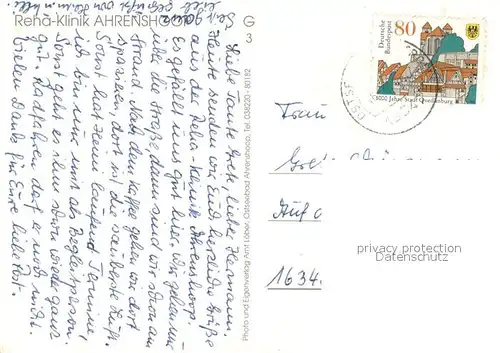 Reha-Klinik AHRENSHOOP
G
3
Liebe Tante Grete, liebe Hermann,
Heute senden wir Euch herzliche Grüße
aus der Reha-Klinik Ahrenshoop.
Es gefällt uns gut hier. Wir gehen nur
über die Straße, dann sind wir schon am
Strand. Nach dem Kaffee gehen wir dort
spazieren, dort ist die sauberste Luft.
Sonst hat Heini laufend Termine,
ich bin nur mit als Begleitperson.
Sonst geht es ihm schon wieder ganz
gut, Radfahren darf er noch nicht.
Vielen Dank für Eure liebe Post.
Photo und Eigenverlag Arnt Löber, Ostseebad Ahrenshoop, Tel. 038220 - 80182
Deutsche
Bundespost
80
1000 Jahre Stadt Quedlinburg
Frau
Auf
1634
privacy protection
Datenschutz